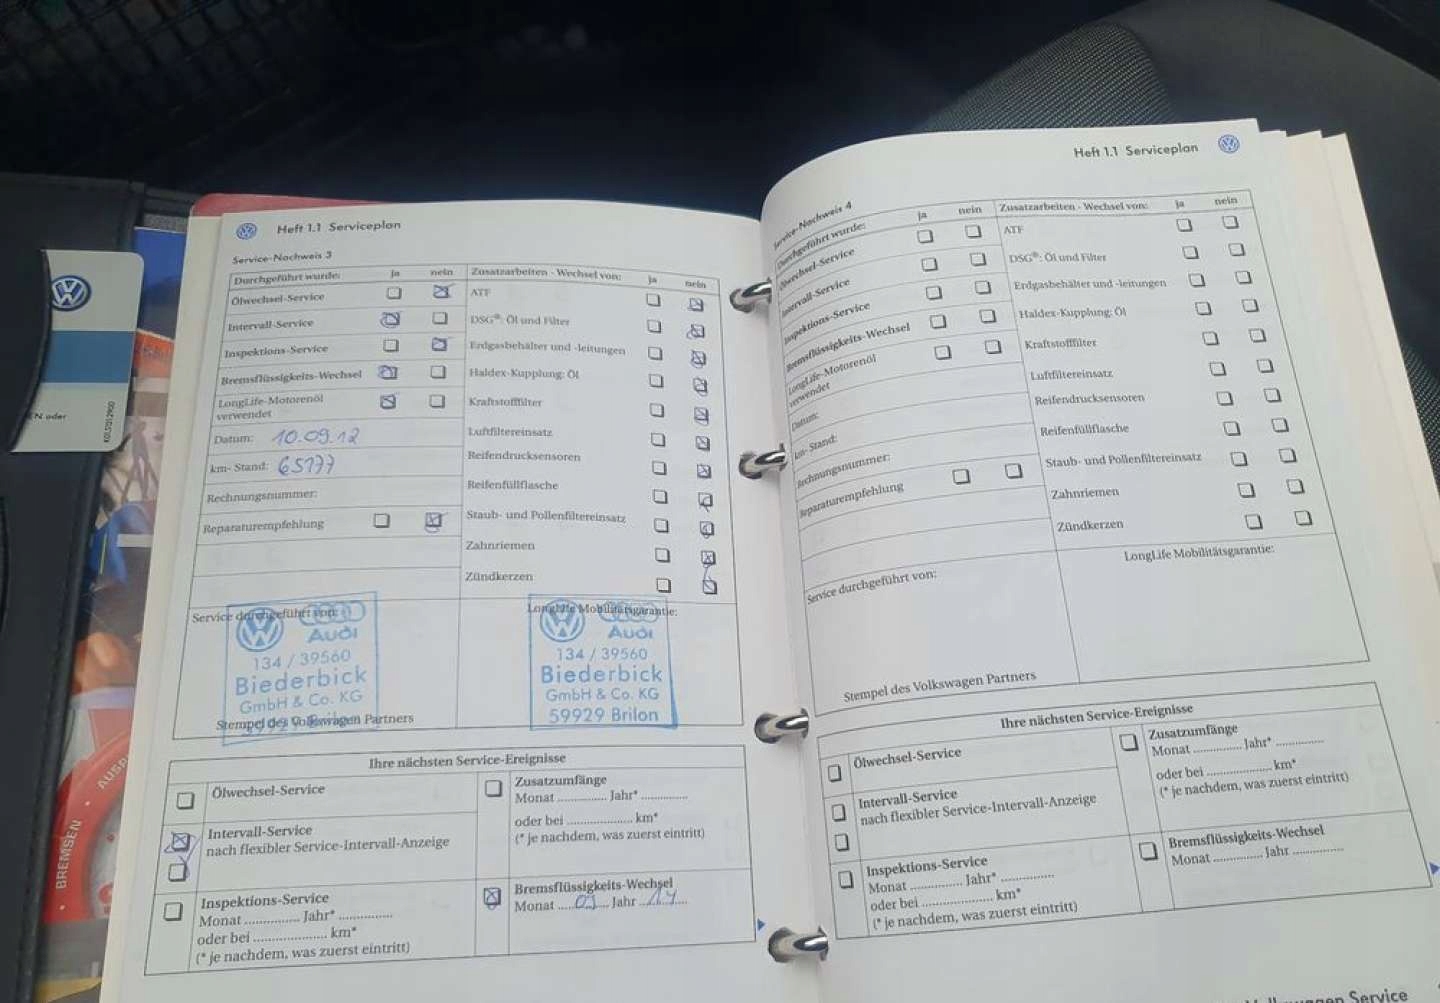 Heft 1.1 Serviceplan
Service-Nachweis 3
Durchgeführt wurde: ja nein
Ölwechsel-Service
Intervall-Service
Inspektions-Service
Bremsflüssigkeits-Wechsel
LongLife-Motorenöl
verwendet
Datum: 10.09.12
km- Stand: 65177
Rechnungsnummer:
Reparaturempfehlung
Zusatzarbeiten - Wechsel von: ja nein
ATF
DSG®: Öl und Filter
Erdgasbehälter und -leitungen
Haldex-Kupplung: Öl
Kraftstofffilter
Luftfiltereinsatz
Reifendrucksensoren
Reifenfüllflasche
Staub- und Pollenfiltereinsatz
Zahnriemen
Zündkerzen
Service durchgeführt von:
Audi
134 / 39560
Biederbick
GmbH & Co. KG
59929 Brilon
Stempel des Volkswagen Partners
LongLife Mobilitätsgarantie:
Audi
134 / 39560
Biederbick
GmbH & Co. KG
59929 Brilon
Ihre nächsten Service-Ereignisse
Ölwechsel-Service
Intervall-Service
nach flexibler Service-Intervall-Anzeige
Inspektions-Service
Monat ............... Jahr* ...............
oder bei .................... km*
(* je nachdem, was zuerst eintritt)
Zusatzumfänge
Monat ............. Jahr* .............
oder bei .................... km*
(* je nachdem, was zuerst eintritt)
Bremsflüssigkeits-Wechsel
Monat 09 Jahr 14
Heft 1.1 Serviceplan
Service-Nachweis 4
Durchgeführt wurde: ja nein
Ölwechsel-Service
Intervall-Service
Inspektions-Service
Bremsflüssigkeits-Wechsel
LongLife-Motorenöl
verwendet
Datum:
km- Stand:
Rechnungsnummer:
Reparaturempfehlung
Zusatzarbeiten - Wechsel von: ja nein
ATF
DSG®: Öl und Filter
Erdgasbehälter und -leitungen
Haldex-Kupplung: Öl
Kraftstofffilter
Luftfiltereinsatz
Reifendrucksensoren
Reifenfüllflasche
Staub- und Pollenfiltereinsatz
Zahnriemen
Zündkerzen
Service durchgeführt von:
Stempel des Volkswagen Partners
LongLife Mobilitätsgarantie:
Ihre nächsten Service-Ereignisse
Ölwechsel-Service
Intervall-Service
nach flexibler Service-Intervall-Anzeige
Inspektions-Service
Monat .............. Jahr* ..............
oder bei .................... km*
(* je nachdem, was zuerst eintritt)
Zusatzumfänge
Monat ............. Jahr* .............
oder bei .................. km*
(* je nachdem, was zuerst eintritt)
Bremsflüssigkeits-Wechsel
Monat ............. Jahr .............
Service
oder
BREMSEN